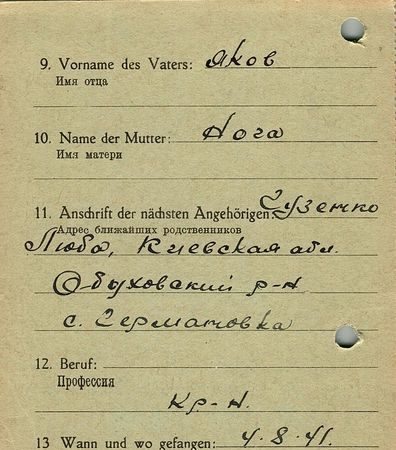 9. Vorname des Vaters: Яков
Имя отца
10. Name der Mutter: Нога
Имя матери
11. Anschrift der nächsten Angehörigen: Гузенко
Адрес ближайших родственников
Люба, Киевская обл.
Обуховский р-н
с. Германовка
12. Beruf:
Профессия
Кр-н.
13 Wann und wo gefangen: 4.8.41.